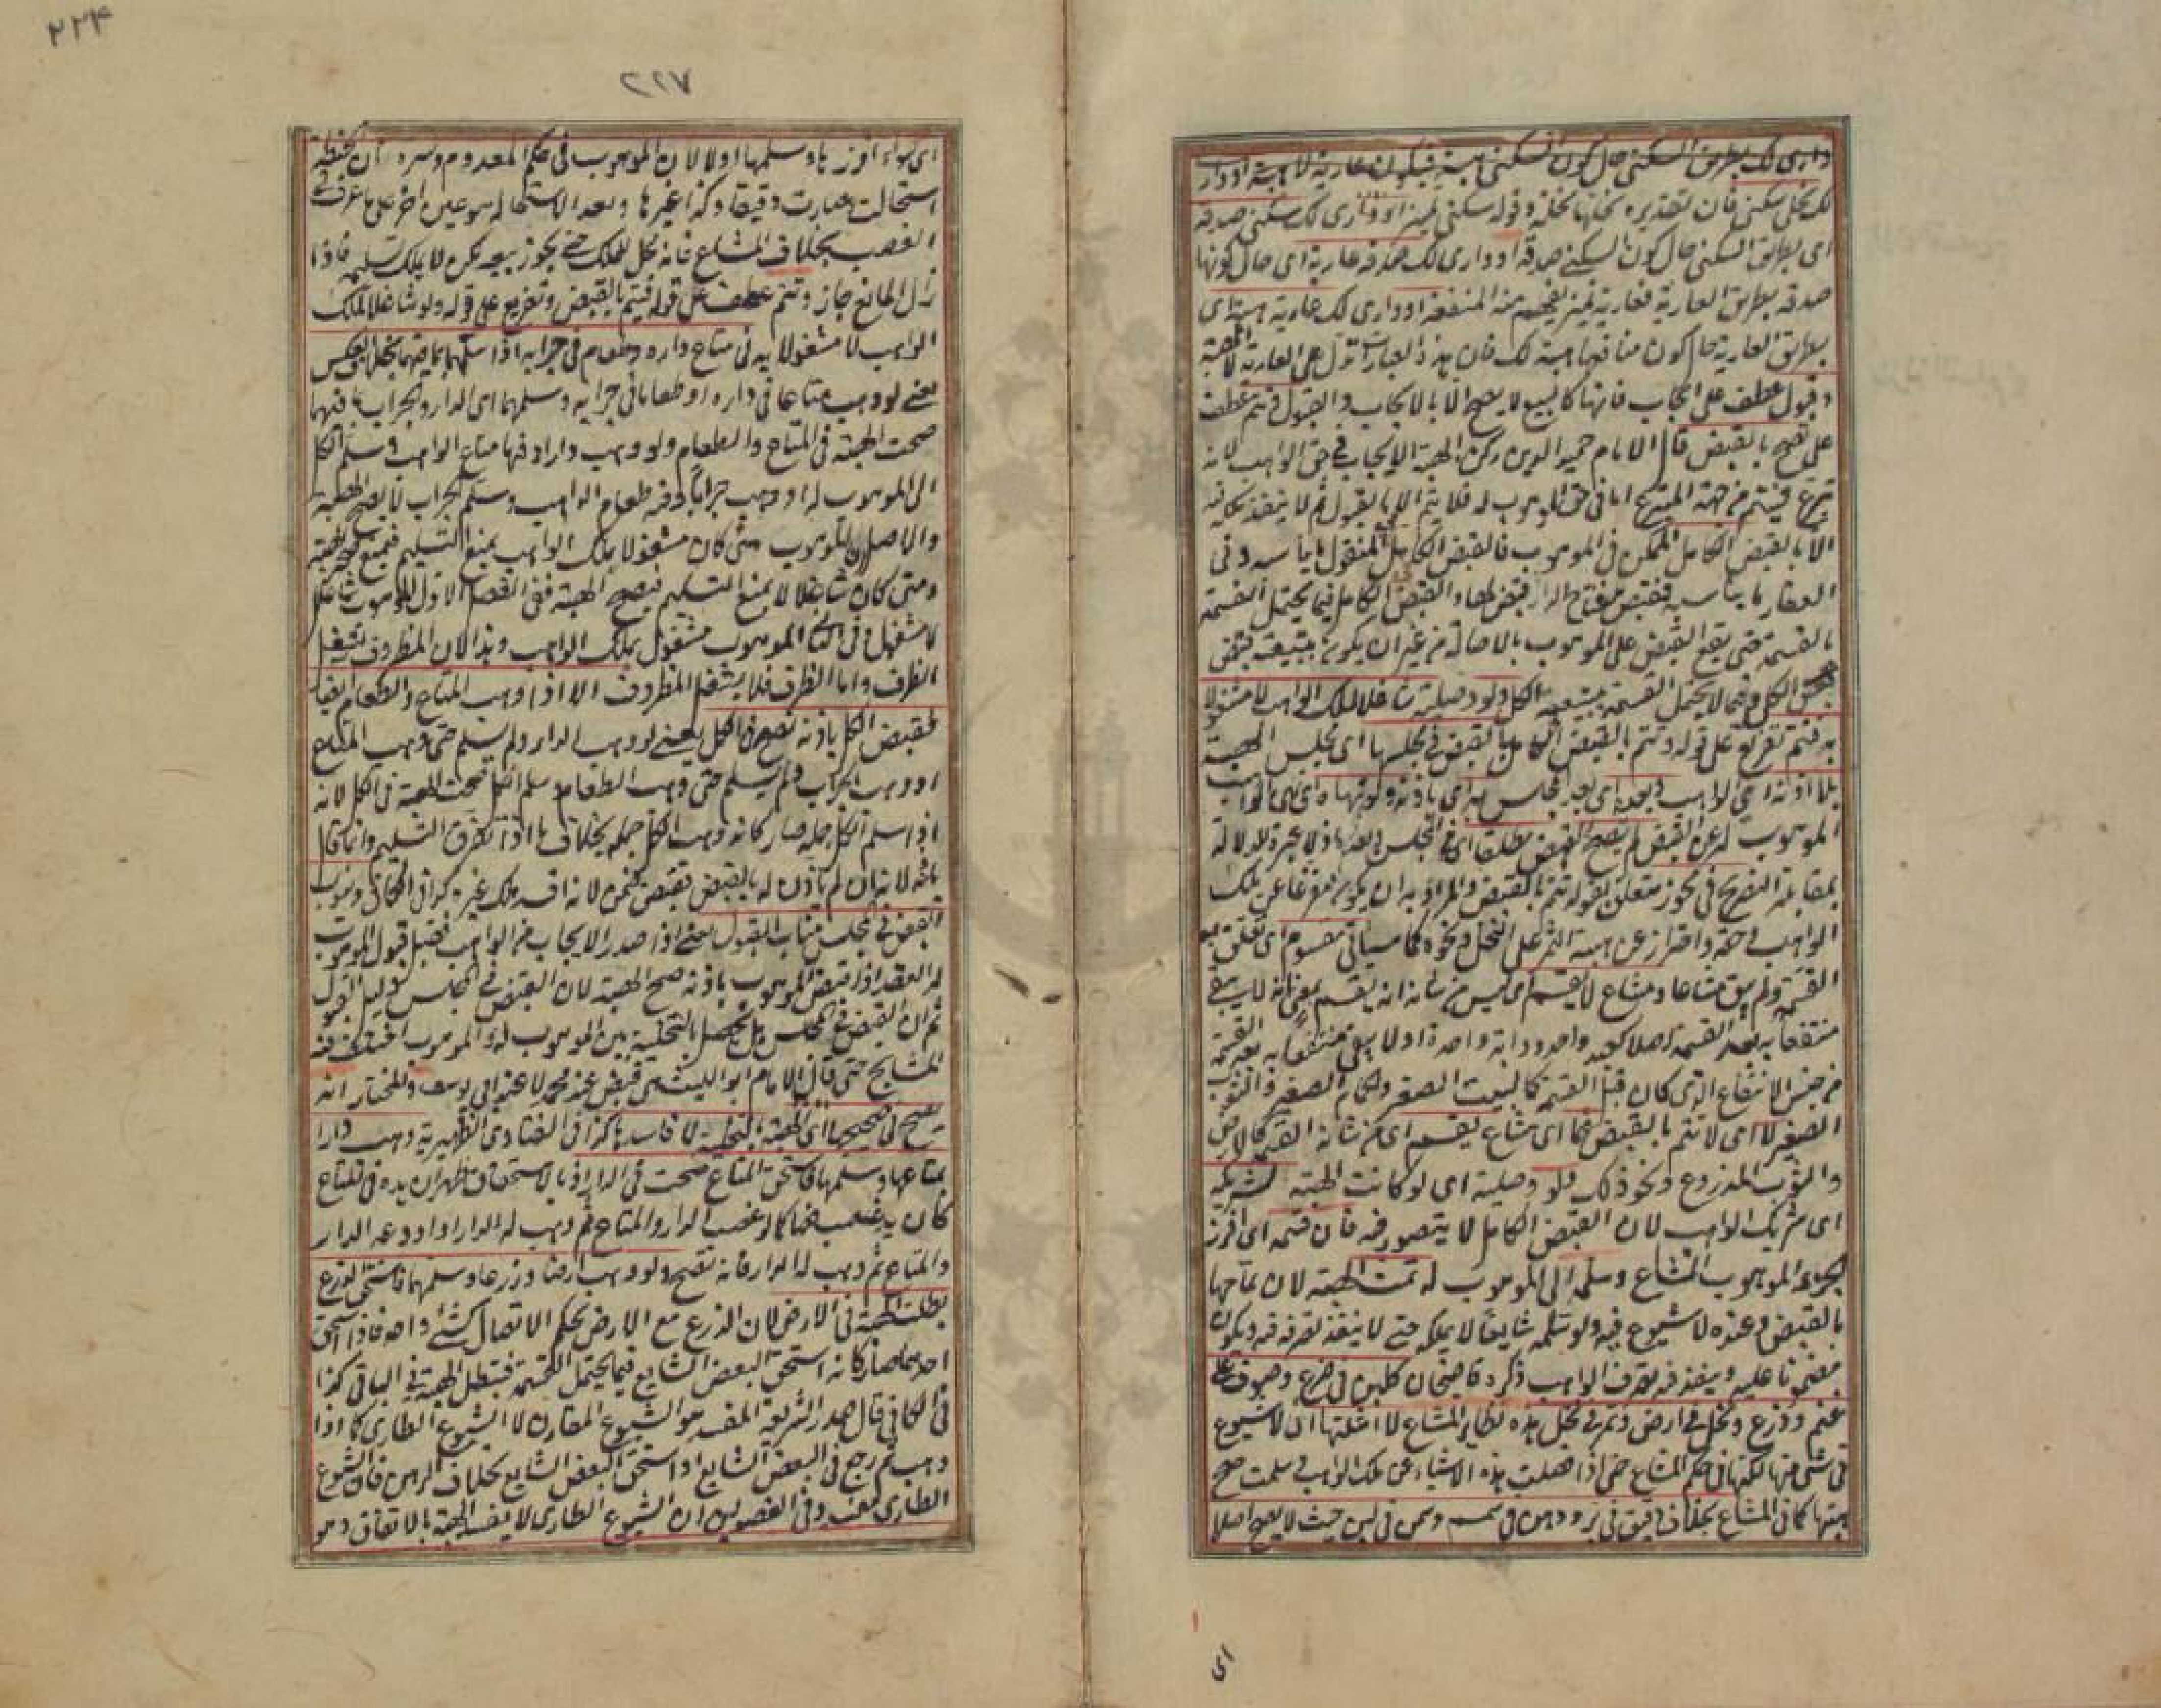 داري لك بطريق السكنى حال كون السكنى هبة فيكون عارية لا هبة او دار
لك نحل سكنى فان تقديره نحلتها نحلة وقوله سكنى تمييز او داري لك سكنى صدقة
اى بطريق السكنى حال كون السكنى صدقة او داري لك صدقة عارية اى حال كونها
صدقة بطريق العارية فعارية تمييز يفهم منه المنفعة او داري لك عارية هبة اى
بطريق العارية حال كون منافعها هبة لك فان هذه العبارات تدل على العارية لا الهبة
وقبول عطف على ايجاب فانها كالبيع لا يصح الا بالايجاب والقبول وتتم عطف
على تصح بالقبض قال الامام حميد الدين ركن الهبة الايجاب في حق الواهب لانه
تبرع فيتم من جهة المتبرع اما في حق الموهوب له فلا يتم الا بالقبول ثم لا ينفذ ملكه فيه
الا بالقبض الكامل الممكن في الموهوب فالقبض الكامل في المنقول ما يناسبه وفي
العقار ما يناسبه فقبض مفتاح الدار قبض لها والقبض الكامل فيما يحتمل القسمة
بالقسمة حتى يقع القبض على الموهوب بالاصالة من غير ان يكون بتبعية قبض
الكل وفيما لا يحتمل القسمة بتبعية الكل ولو وصلية شاغلا لملك الواهب لا مشغولا
به فتتم تفريع على قوله وتتم بالقبض الكامل بالقبض في مجلسها اى مجلس الهبة
بلا اذنه اى الواهب وبعده اى بعد مجلس به اى باذنه ولو نهاه اى نهى الواهب
الموهوب له عن القبض لم يصح القبض مطلقا اى في المجلس وبعده اذ لا عبرة للدلالة
بمقابلة التصريح في محوز متعلق بقوله تتم بالقبض والمراد به ان يكون مفرغا عن ملك
الواهب وحقه واحتراز عن هبة الثمر على النخل ونحوه كما سيأتي مقسوم اى تعلق به
القسمة ولم يبق مشاعا ومشاع لا يقسم اى ليس من شانه ان يقسم بمعنى انه لا يبقى
منتفعا به بعد القسمة اصلا كعبد واحد ودابة واحدة او لا يبقى منتفعا به بعد القسمة
من جنس الانتفاع الذي كان قبل القسمة كالبيت الصغير والحمام الصغير والثوب
الصغير لا اى لا تتم بالقبض فيما اى مشاع يقسم اى من شانه القسمة كالارض
والثوب المذروع ونحو ذلك ولو وصلية اى لو كانت الهبة لشريكه
اى شريك الواهب لان القبض الكامل لا يتصور فيه فان قسمه اى افرز
الجزء الموهوب المشاع وسلمه الى الموهوب له تمت الهبة لان تمامها
بالقبض وعنده لا شيوع فيه ولو سلمه شايعا لا يملكه حتى لا ينفذ تصرفه فيه ويكون
مضمونا عليه وينفذ فيه تصرف الواهب ذكره قاضيخان كلبن في ضرع وصوف على
غنم وزرع ونخل في ارض وتمر في نخل هذه نظائر المشاع لا امثلتها اذ لا شيوع
في شئ منها لكنها في حكم المشاع حتى اذا فصلت هذه الاشياء عن ملك الواهب وسلمت صح
هبتها كما في المشاع بخلاف دقيق في بر ودهن في سمسم وسمن في لبن حيث لا يصح اصلا
اى
٢٢٤
٢٢٧
اى سواء افرزها وسلمها او لا لان الموهوب في حكم المعدوم وسره ان الحنطة
استحالت وصارت دقيقا وكذا غيرها وبعد الاستحالة هو عين اخر على ما عرف في
الغصب بخلاف المشاع فانه محل للملك حتى يجوز بيعه لكن لا يملك تسليمه فاذا
زال المانع جاز وتتم عطف على قوله فتتم بالقبض وتفريع على قوله ولو شاغلا لملك
الواهب لا مشغولا به في متاع داره وطعام في جرابه اذا سلمهما بما فيهما بخلاف العكس
يعنى لو وهب متاعا في داره او طعاما في جرابه وسلمهما اى الدار والجراب بما فيهما
صحت الهبة في المتاع والطعام ولو وهب دارا وفيها متاع الواهب وسلم الكل
الى الموهوب له او وهب جرابا وفيه طعام الواهب وسلم الجراب لا يصح الهبة
والاصل ان الموهوب متى كان مشغولا بملك الواهب يمنع التسليم فيمنع صحة الهبة
ومتى كان شاغلا لا يمنع التسليم فتصح الهبة ففي الفصل الاول الموهوب شاغل
لا مشغول وفي الثاني الموهوب مشغول بملك الواهب وهذا لان المظروف يشغل
الظرف واما الظرف فلا يشغل المظروف الا اذا وهب المتاع والطعام ايضا
فقبض الكل باذنه تصح في الكل يعنى لو وهب الدار ولم يسلم حتى وهب المتاع
او وهب الجراب ولم يسلم حتى وهب الطعام وسلم الكل صحت الهبة في الكل لانه
اذا سلم الكل جملة صار كانه وهب الكل جملة بخلاف ما اذا تفرق التسليم وانما قال
باذنه لانه ان لم ياذن له بالقبض فقبض ضمن لانه افسد ملك غيره كذا في الكافي وينوب
القبض في مجلس مناب القبول يعنى اذا صدر الايجاب من الواهب فقبل قبول الموهوب
له العقد اذا قبض الموهوب باذنه صح الهبة لان القبض في المجلس دليل القبول
ثم ان القبض في المجلس هل يحصل بالتخلية بين الموهوب له والموهوب اختلف فيه
المشايخ حتى قال الامام ابو الليث هى قبض عند محمد لا عند ابي يوسف والمختار انه
تصح في صحيحها اى الهبة بالتخلية لا فاسدها كذا في الفتاوى الظهيرية وهب دارا
بمتاعها وسلمها فاستحق المتاع صحت في الدار اذ بالاستحقاق ظهر ان يده في المتاع
كان يد غصب فصار كما لو غصب الدار والمتاع ثم وهب له الدار او اودعه الدار
والمتاع ثم وهب له الدار فانه تصح ولو وهب ارضا وزرعا وسلمها فاستحق الزرع
بطلت الهبة في الارض لان الزرع مع الارض بحكم الاتصال كشئ واحد فاذا استحق
احدهما صار كانه استحق البعض الشايع فيما يحتمل القسمة فتبطل الهبة في الباقي كذا
في الكافي قال صدر الشريعة المفسد هو الشيوع المقارن لا الشيوع الطاري كما اذا
وهب ثم رجع في البعض الشايع او استحق البعض الشايع بخلاف الرهن فان الشيوع
الطاري يفسده وفي الفصولين ان الشيوع الطاري لا يفسد الهبة بالاتفاق وهو